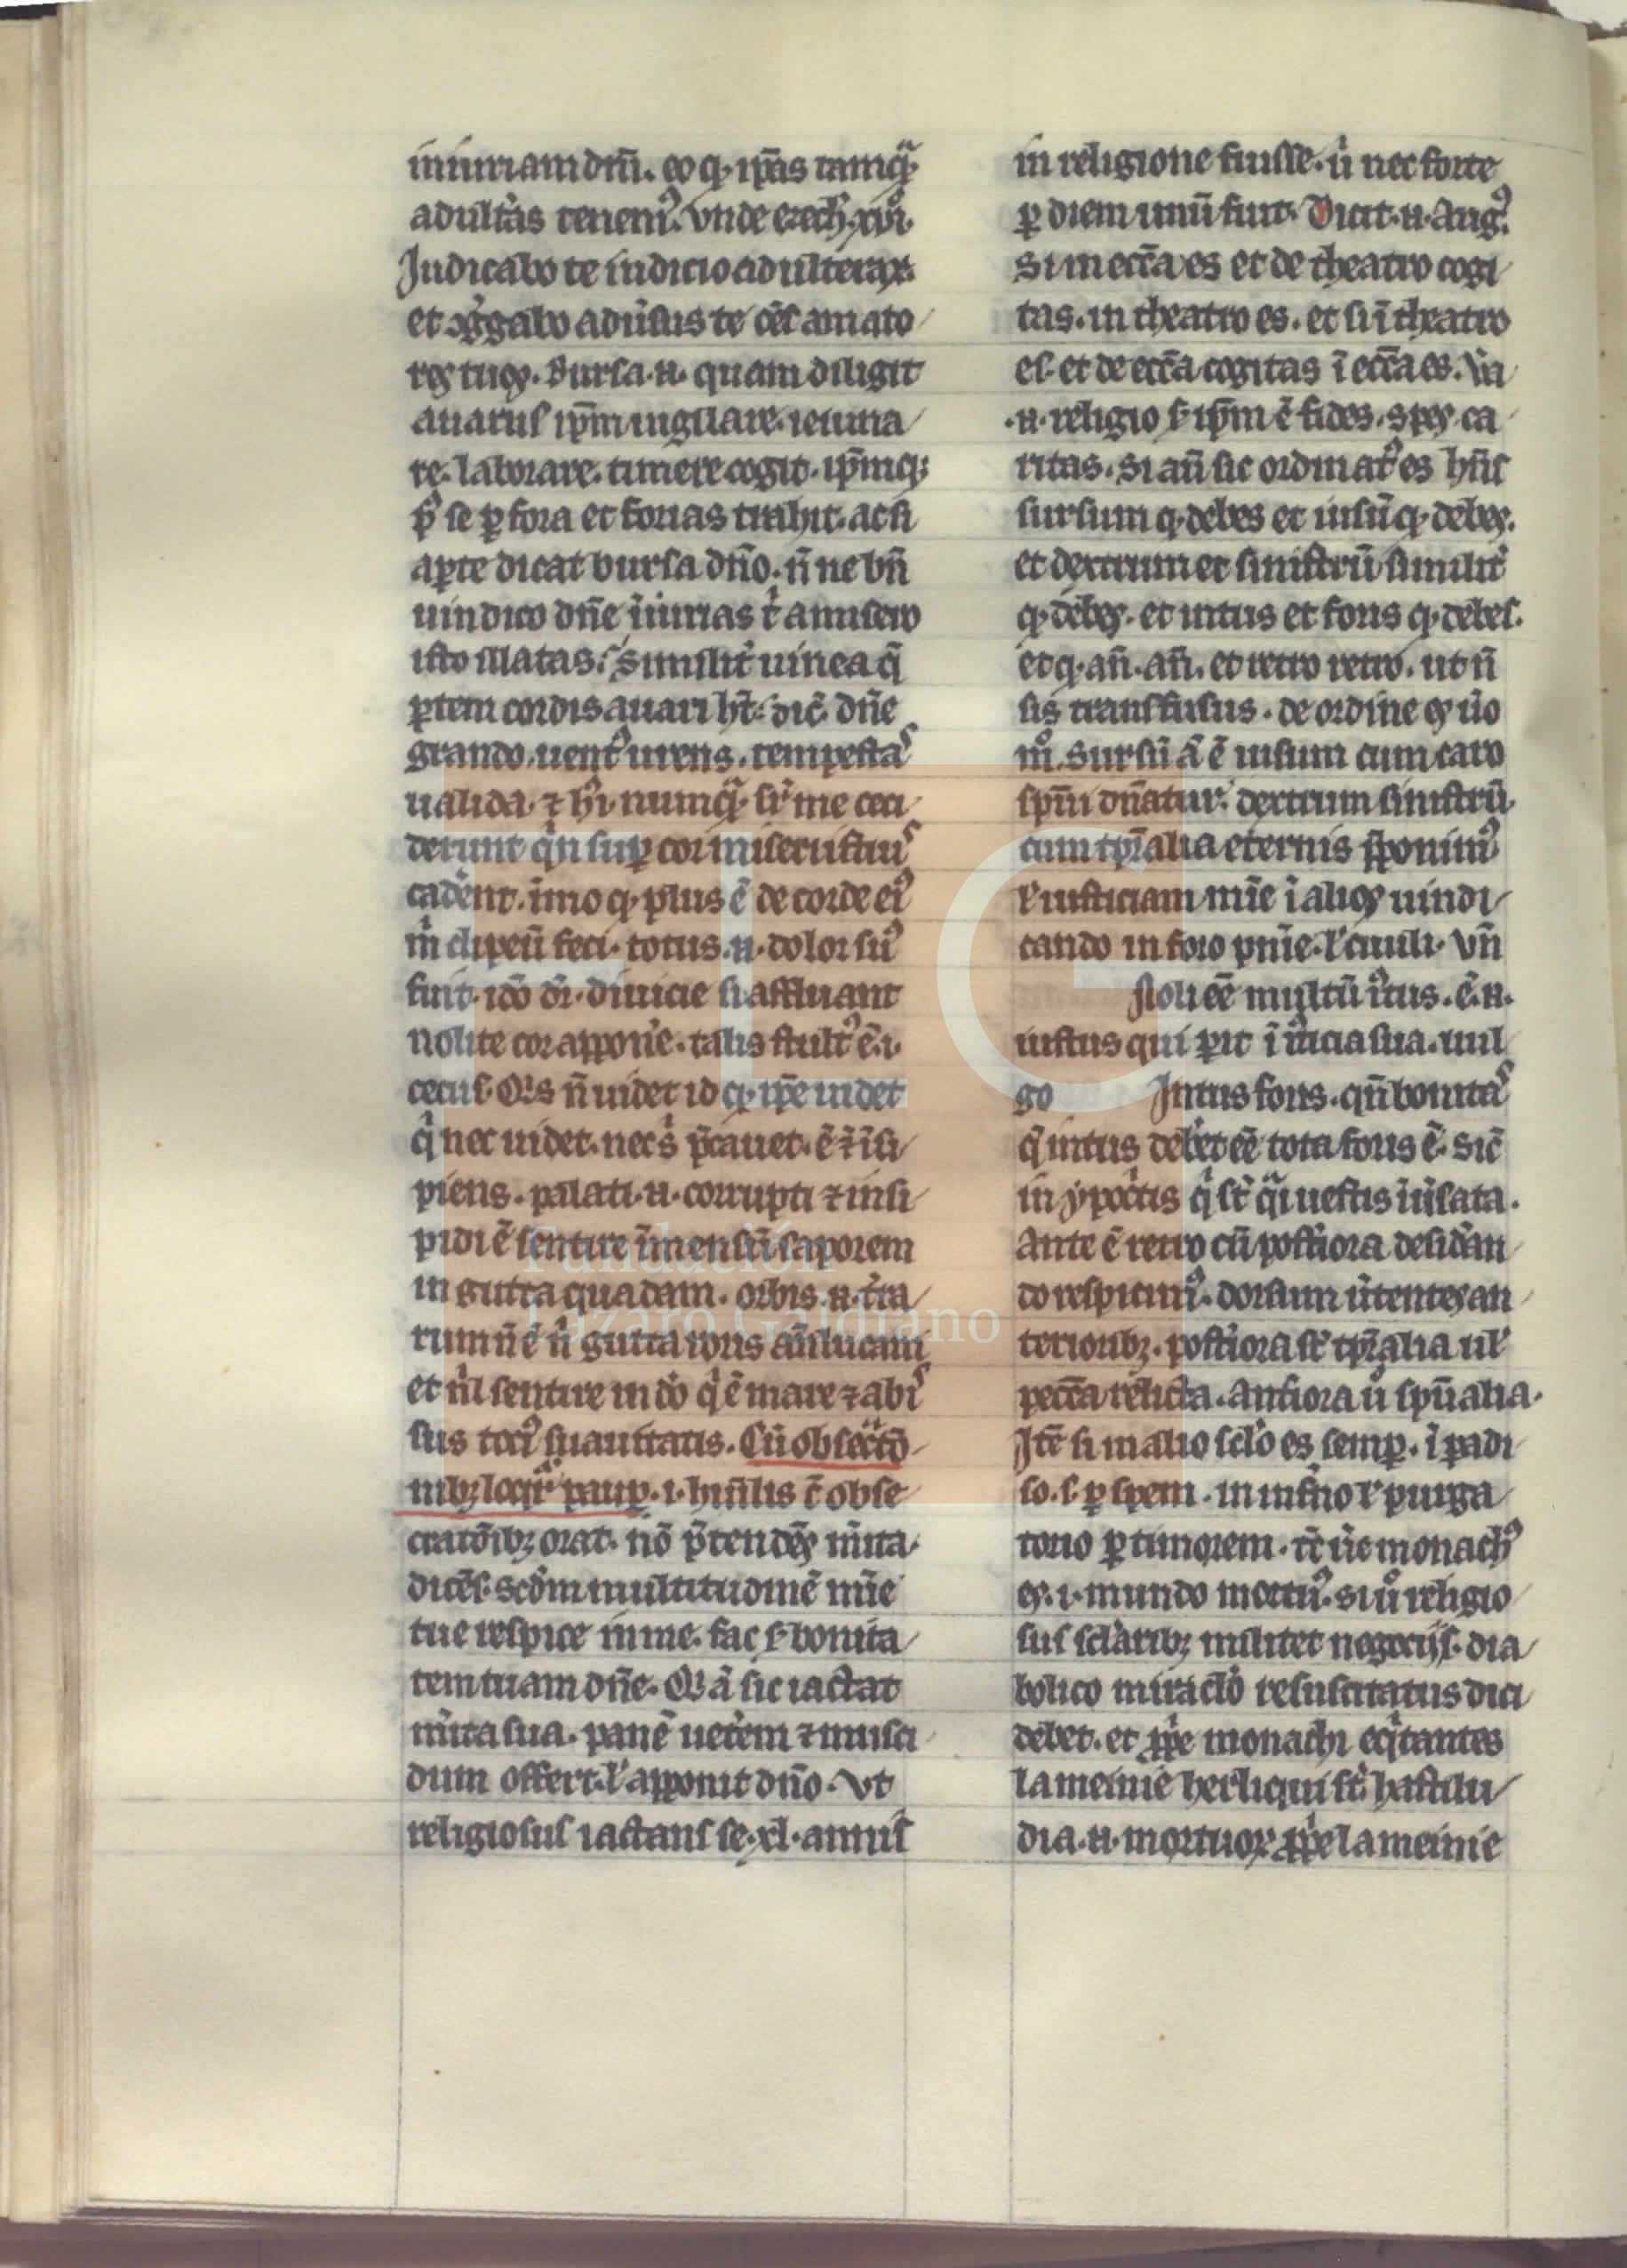 iniuriam dnī. eo q̵ ip̄as tamq̃
adult̾as tenemꝰ. vnde ezech. xvi.
Iudicabo te iudicio adulteraꝝ
et ꝯg̾gabo adu̾sus te o̅es amato
res tuos. Bursa .n. quam diligit
auarus ip̄m uigilare. ieiuna
re. laborare. timere cogit. ip̄mqꝫ
p̾ se ꝑ fora et forias trahit. ac si
aꝑte dicat bursa dn̄o. n̄ne bn̄
uindico dn̄e iniurias t̾ a misero
isto illatas. Similit̾ uinea q̄
ꝑtem cordis auari h̄t. dic̄ dn̄e
grando. uentꝰ urens. tempesta
ualida. ⁊ hi numq̃ sr̾ me ceci
derunt qͥn suꝑ cor miseri istiꝰ
cadent. immo q̵ plus ē de corde eiꝰ
m̾ clipeū feci. totus .n. dolor suꝰ
fuit. idō dr̄. diuicie si affluant
nolite cor appone̾. talis stultꝰ ē .i.
cecus. Qͥs n̄ uidet id q̵ ip̄e uidet
qͥ nec uidet. nec s̾ p̄cauet. ē ⁊ īsi
piens. palati .n. corrupti ⁊ insi
pidi ē sentire īmensū saporem
in gutta quadam. orbis .n. t̾ra
rum n̄ ē n̾ gutta roris an̄lucani
et n̾l sentire in dō qͥ ē mare ⁊ abi
sus tociꝰ suauitatis. Cū obsec̾tō
nibꝫ loqͥt̾ pauꝑ. i. hu̅ilis c̄ obse
crat̄oībꝫ orat. nō p̄tendēs m̾ita.
dicēs. scd̾m multitudinē mi̅e
tue respice in me. fac s̾ bonita
tem tuam dn̄e. Qͥ ā sic iactat
m̾ita sua. panē uet̾em ⁊ musci
dum offert. l̾ apponit dn̄o. Vt
religiosus iactans se .xl. annis
in religione fuisse. u̾ nec forte
ꝑ diem unū fuit. Dicit .n. Augꝰ.
Si in ecc̄a es et de theatro cogi
tas. in theatro es. et si ī theatro
es. et de ecc̄a cogitas ī ecc̄a es. Va̅
.n. religio s̾ ip̄m ē fides. spes. ca
ritas. Si an̄ sic ordinatꝰ es hn̄s
sursum q̵ debes et iusū q̵ debes.
et dextrum et sinistrū similit̾
q̵ debes. et intus et foris q̵ debes.
et q̵ an̄. an̄. et retro retro. ut n̄
sis transfusus. de ordine es u̾o
mͦ. Sursū ā ē iusum cum caro
spūi dn̄atur. dextrum sinistrū
cum tp̄alia eternis p̾ponimꝰ
l̾ iusticiam mi̅e ī alios uindi
cando in foro pn̄ie. l̾ ciuili. Vn̄
Noli eē multū i̾tus. ē .n.
iustus qui ꝑit ī iu̾cia sua. uul
go Intus foris. qn̄ bonita
q̄ intus debet eē tota foris ē. sic̄
in ypoc̾tis qͥ st̾ qͣi uestis īu̾sata.
Ante ē retro cū post̾iora desid̾an
do respicimꝰ. dorsum u̾tentes an
terioribꝫ. post̾iora st̾ tp̄alia ul̾
pecc̄a relicta. ant̾iora u̾ spūalia.
Itē si in alio sc̾lo es semꝑ. ī ꝑadi
so. s. ꝑ spem. in inf̾no l̾ purga
torio ꝑ timorem. tc̄ ue̾ monachꝰ
es. i. mundo mortuꝰ. si u̾o religio
sus sc̾laribꝫ militet negociis. dia
bolico mirac̾lo resuscitatus dici
debet. et ꝓp̾e monachi eqͥtantes
la meinie herliqui st̾. hastilu
dia .n. mortuoꝝ ꝓp̾e la meinie